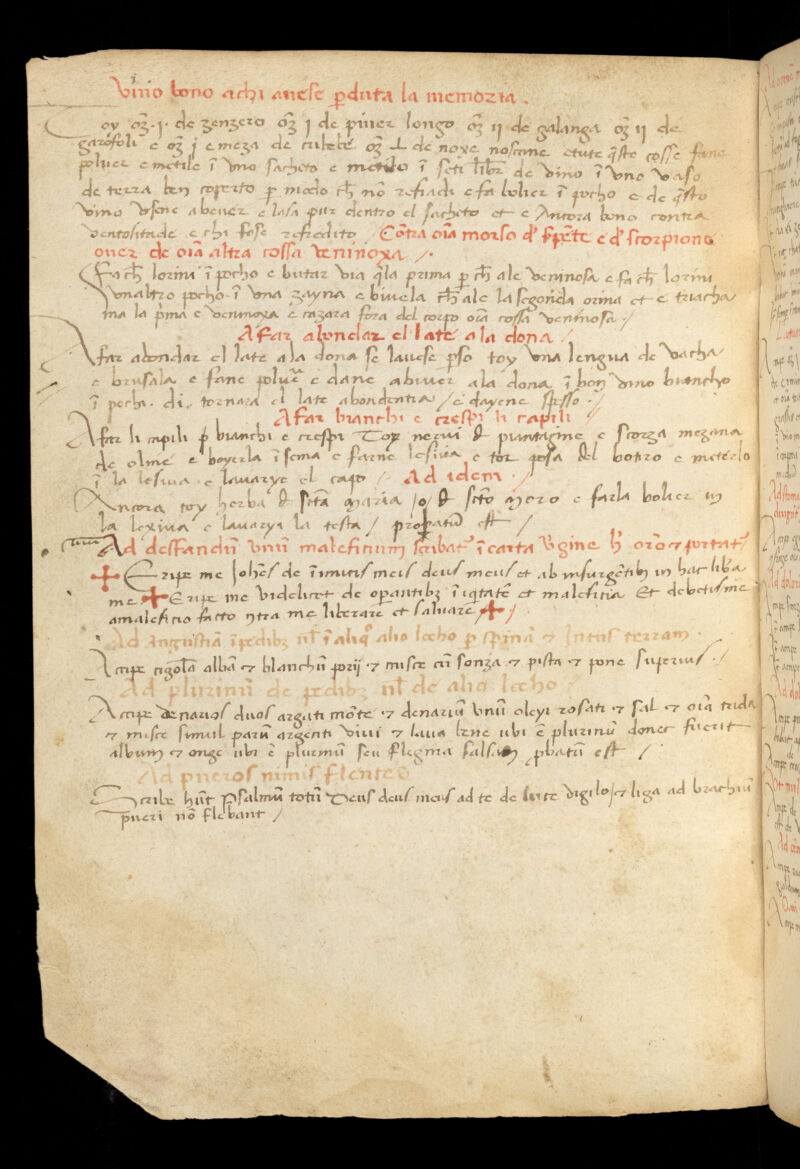 Vīno bono a chi avese pduta la memoria .
Toy oʒ . j . de zenzero oʒ j de piuer longo oʒ ij de galanga oʒ ij de
garofoli e oʒ j e meza de cubebe oʒ de noxe noscane e tute qste cosse fane
poluer e metile ī uno sacheto e metilo ī seti libr de vino ī uno vaso
de terra ben coperto p modo ch nō refiadi e fa bolier ī pocho e de qsto
vino usene a bever e lasa pur dentro el sacheto et e Ancora bono contra
ventositade e chi fose refredito / Cōtra oīa morso d' spēte e d' scorpione
over de oīa altra cossa veninoxa /.
Fa ch lorini ī pocho e butar via qla prima p ch ale veninosa e fa ch lorini
unaltro pocho ī una zayna e bivela ch ale la segonda orina et e triacha
ma la pma e veninoxa e cazara fora del corpo oīa cossa veninosa /
A far abundar el late a la dona /
A far abondar el late a la dona se lavese pso toy una lengua de vacha
e brusala e fane poluer e dane a biver a la dona ī bon vino biancho
ī pocha . di . tornara el late abondentia / e dayene spesso . /
A far bianchi e crespi li capili //
A far li capili p bianchi e crespi Toy nervi d piantagine e scorza mezana
de olme e boyerla īsema e farne lesiva e tor posa del botiro e meterlo
ī la lesiva e lavarye el capo / Ad idem . /
Ancora toy herba d sctā maria / o / d scto mero e farla bolier in
la lexiva e lavarya la testa / probatū est /
Ad deffendū unū maleficium scribat' ī carta v'gine h' orō ⁊ portat'
✠ Eripe me Johēs de īimicis meis deus meus et ab insurgētibʒ in hac liba
me ✠ Eripe me videlicet de opantibʒ īiqitatē et maleficia Et debetis me
a maleficio facto ɔtra me liberare et salvare ✠ /
Ad Angustiā ī pedibʒ ul' ī aliqo alio locho p spinā ⁊ Intus terram .
Accipe albā ⁊ blanchū porij ⁊ misce cū sonza ⁊ pista ⁊ pone superius . /
Ad plurinū de pedibʒ ul' de alio locho /
Accipe denarios duos argēti mōte ⁊ denariū unū oleyi rosati ⁊ sal ⁊ oīa trida
⁊ misce simul parū argenti vivi ⁊ lava bene ubi ē plurinū donec fuerit
album ⁊ onge ubi ē plurinum seu flegma salsum pbatū est /
Ad pueros nimis flentes
Scribe hūc psalmū totū Deus deus meus ad te de luce vigilo / ⁊ liga ad brachiū
pueri nō flebant /